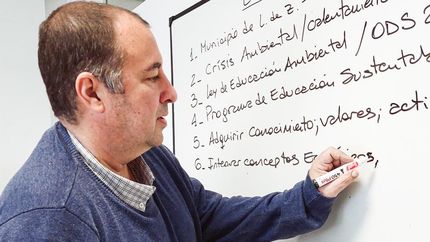 1. Municipio de L. de Z.
2_ Crisis Ambiental/calentamiento
3_ Ley de Educación Ambiental / ODS 2
4_ Programa de Educación Sustentabl
5_ Adquirir conocimiento; valores; acti
6_ Integrar conceptos